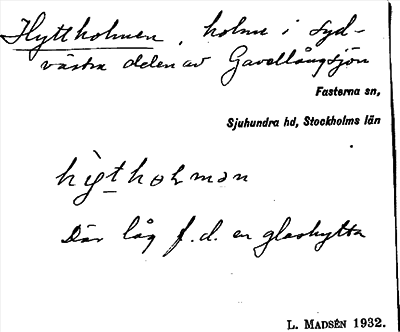 Hyttholmen, holme i syd-
västra delen av Gavellångsjön
Fasterna sn,
Sjuhundra hd, Stockholms län
hytholman
Där låg f. d. en glashytta
L. MADSÉN 1932.